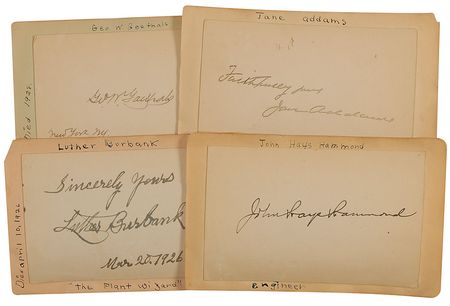 Geo W Goethals
Geo W. Goethals
New York Ny.
Died 1928
Jane Addams
Faithfully yours
Jane Addams
Luther Burbank
Sincerely Yours
Luther Burbank
Mar 20. 1926
Died april 10, 1926
"The Plant Wizard"
John Hays Hammond
John Hays Hammond
Engineer